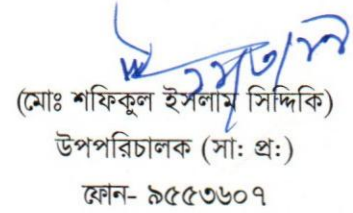 (মোঃ শফিকুল ইসলাম সিদ্দিকি)
উপপরিচালক (সা: প্র:)
ফোন- ৯৫৫৩৬০৭